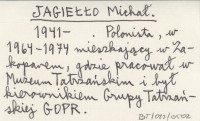 JAGIEŁŁO Michał.
1941- . Polonista, w
1964-1974 mieszkający w Za-
kopanem, gdzie pracował w
Muzeum Tatrzańskim i był
kierownikiem Grupy Tatrzań-
skiej GOPR.